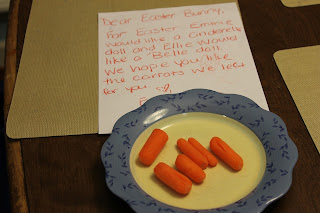 Dear Easter Bunny,
For Easter Emmie
would like a Cinderella
doll and Ellie would
like a Belle doll.
We hope you like
the carrots we left
for you.
E